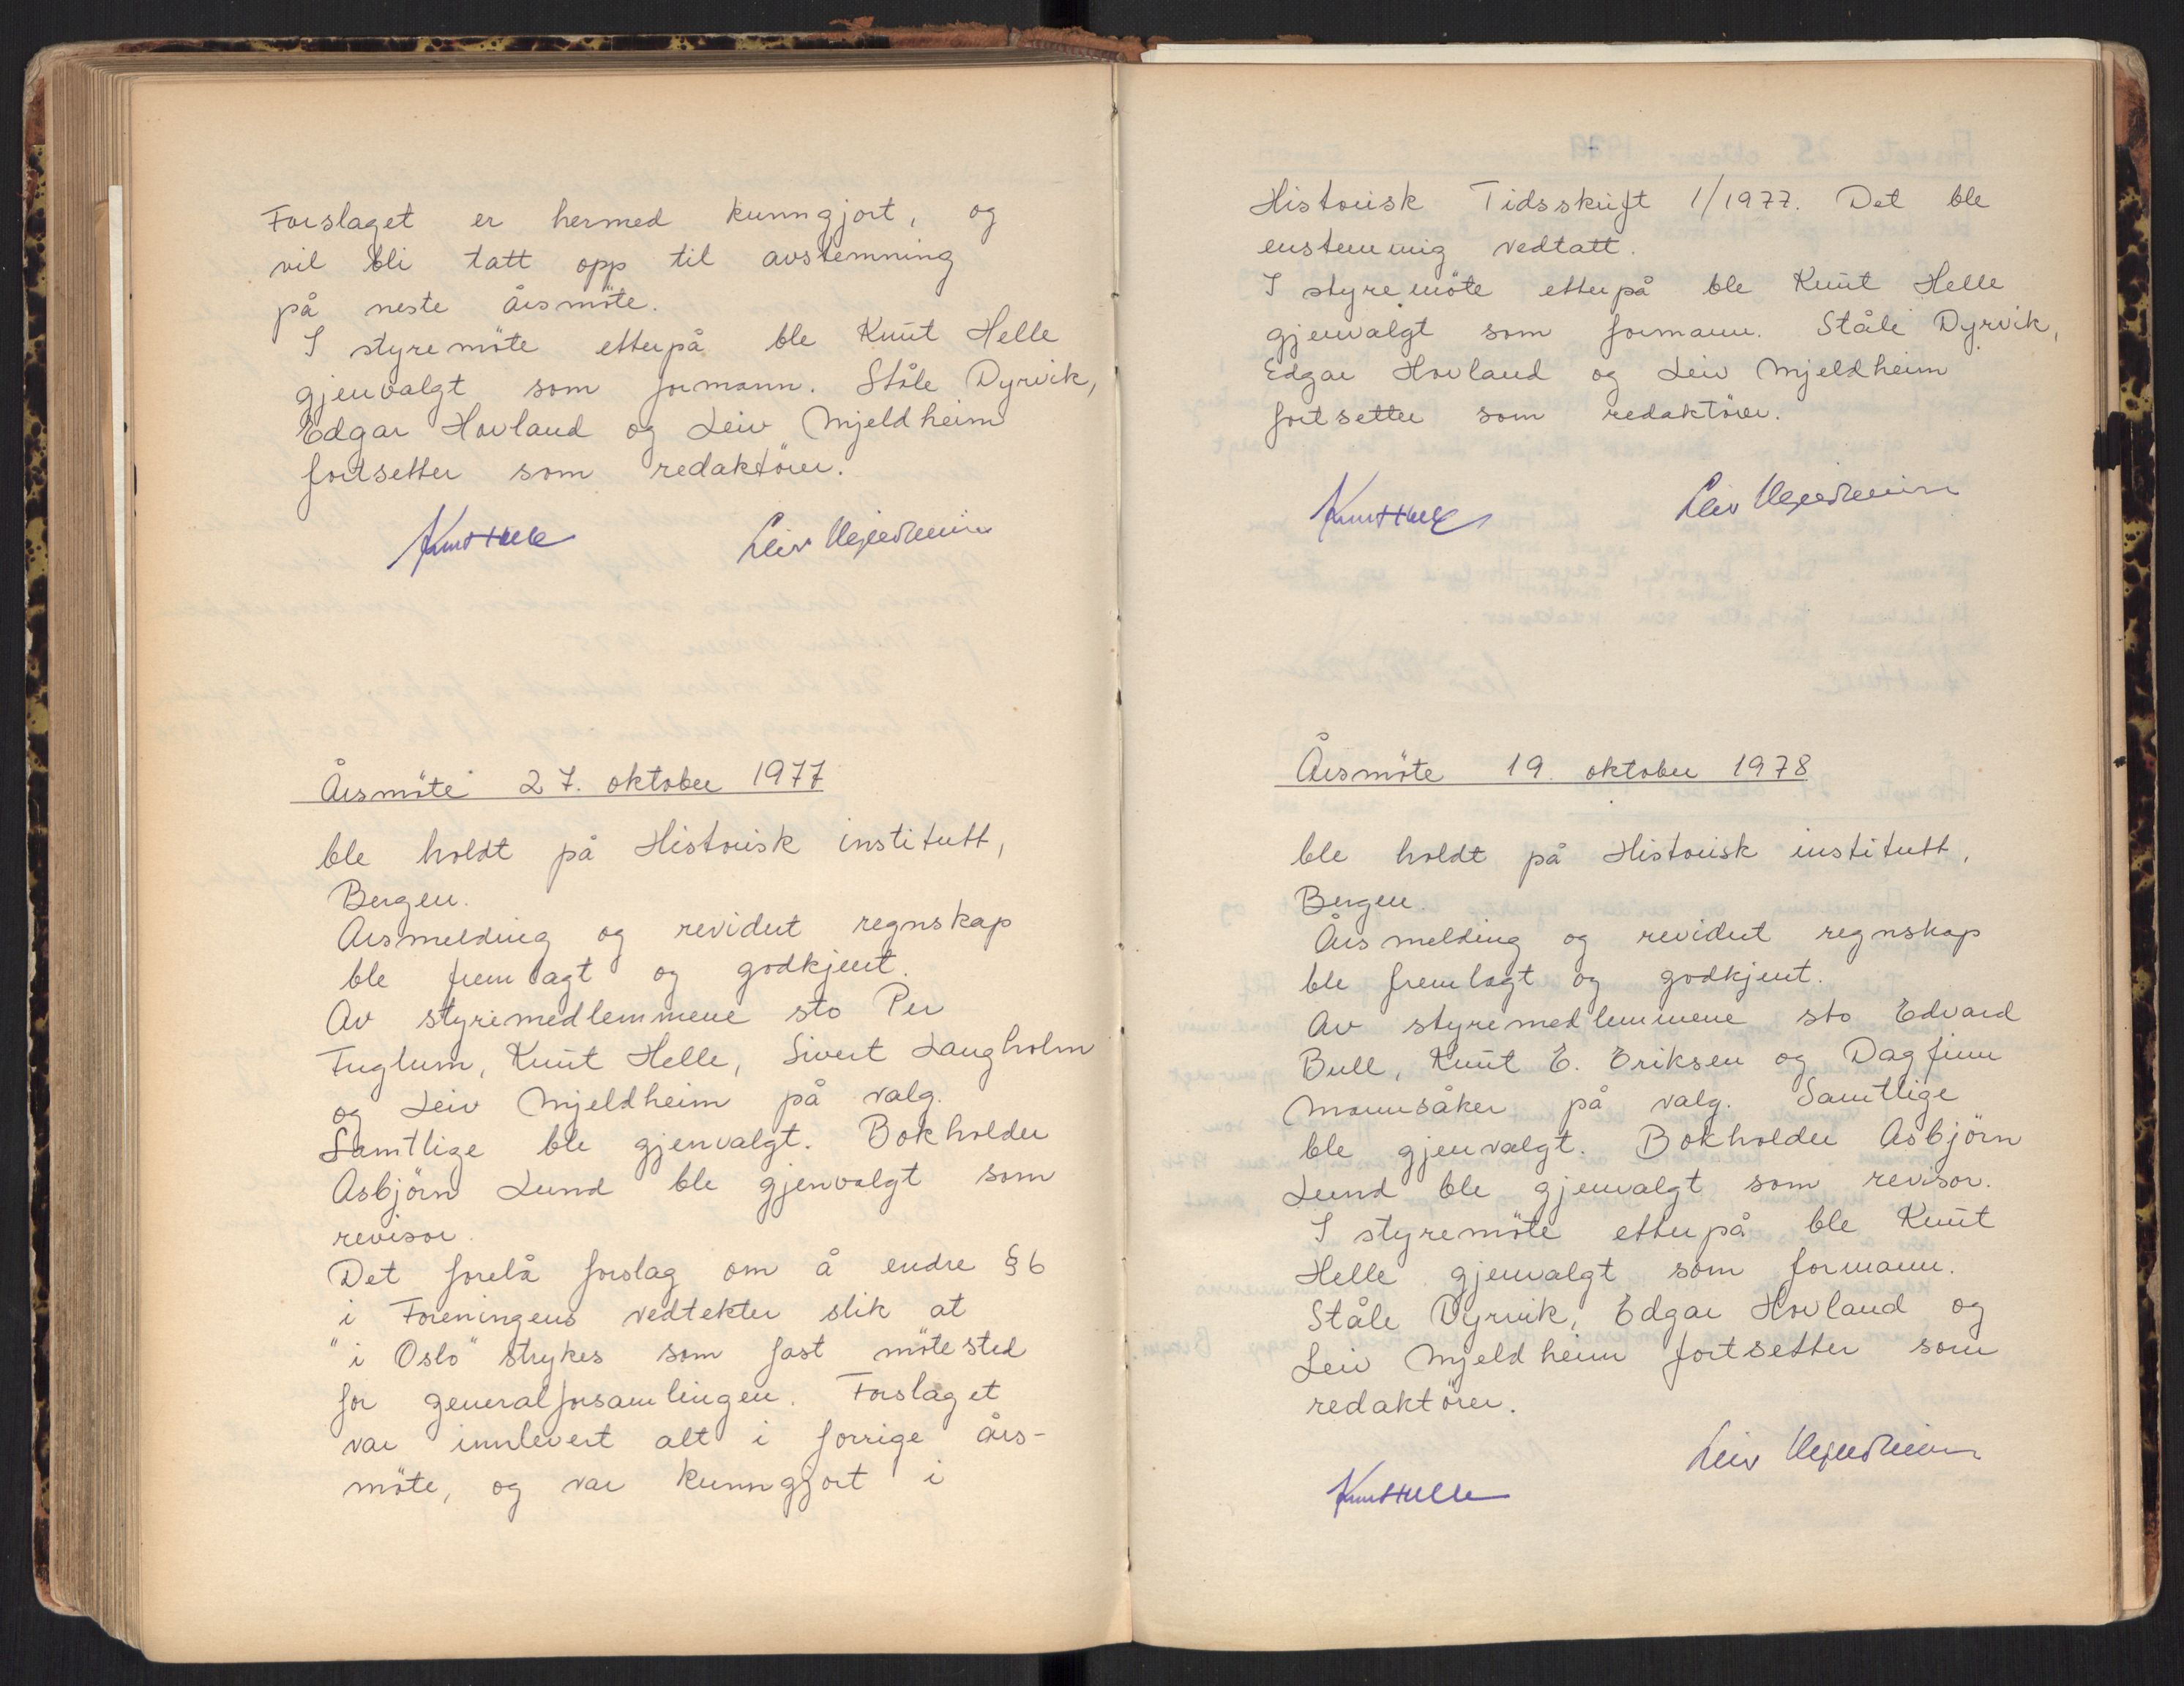 Forslaget er hermed kunngjort, og
vil bli tatt opp til avstemning
på neste årsmöte.
I styremöte etterpå ble Knut Helle
gjenvalgt som formann. Ståle Dyrvik,
Edgar Hovland og Leiv Mjeldheim
fortsetter som redaktörer.
Knut Helle Leiv Mjeldheim
Årsmöte 27. oktober 1977
ble holdt på Historisk institutt,
Bergen.
Årsmelding og revidert regnskap
ble fremlagt og godkjent.
Av styremedlemmene sto Per
Fuglum, Knut Helle, Sivert Langholm
og Leiv Mjeldheim på valg.
Samtlige ble gjenvalgt. Bokholder
Asbjörn Lund ble gjenvalgt som
revisor.
Det forelå forslag om å endre §6
i Foreningens vedtekter slik at
"i Oslo" strykes som fast mötested
for generalforsamlingen. Forslaget
var innlevert alt i forrige års-
möte, og var kunngjort i
Historisk Tidsskrift 1/1977. Det ble
enstemmig vedtatt.
I styremöte etterpå ble Knut Helle
gjenvalgt som formann. Ståle Dyrvik,
Edgar Hovland og Leiv Mjeldheim
fortsetter som redaktörer.
Knut Helle Leiv Mjeldheim
Årsmöte 19. oktober 1978
ble holdt på Historisk institutt,
Bergen.
Årsmelding og revidert regnskap
ble fremlagt og godkjent.
Av styremedlemmene sto Edvard
Bull, Knut E. Eriksen og Dagfinn
Mannsåker på valg. Samtlige
ble gjenvalgt. Bokholder Asbjörn
Lund ble gjenvalgt som revisor.
I styremöte etterpå ble Knut
Helle gjenvalgt som formann.
Ståle Dyrvik, Edgar Hovland og
Leiv Mjeldheim fortsetter som
redaktörer.
Leiv Mjeldheim
Knut Helle